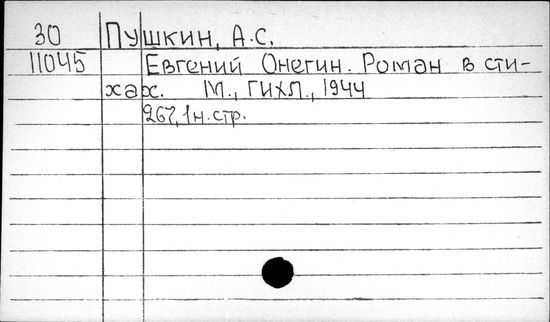 30 Пушкин, А.С.
11045 Евгений Онегин. Роман в сти-
хах. М., ГИХЛ., 1944
267, 1н. стр.